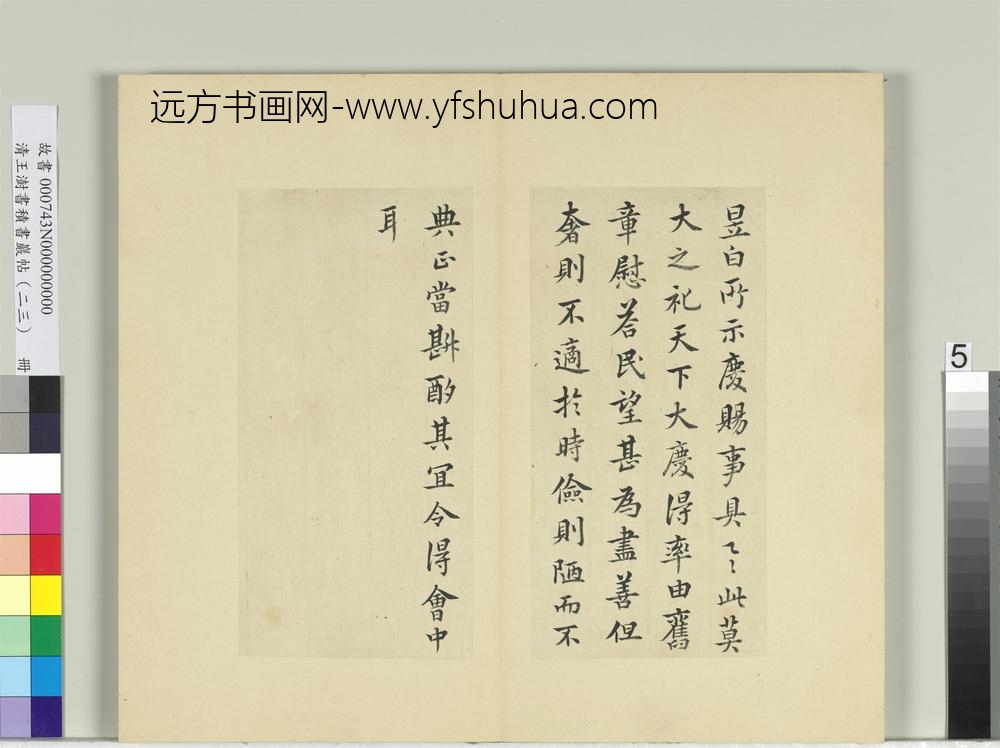 远方书画网-www.yfshuhua.com
昱白所示慶賜事具此莫
大之祀天下大慶得率由舊
章慰荅民望甚為盡善但
奢則不適於時儉則陋而不
典正當斟酌其宜令得會中
耳
故書 000743N000000000
清王澍書積書巖帖（二三） 冊
5